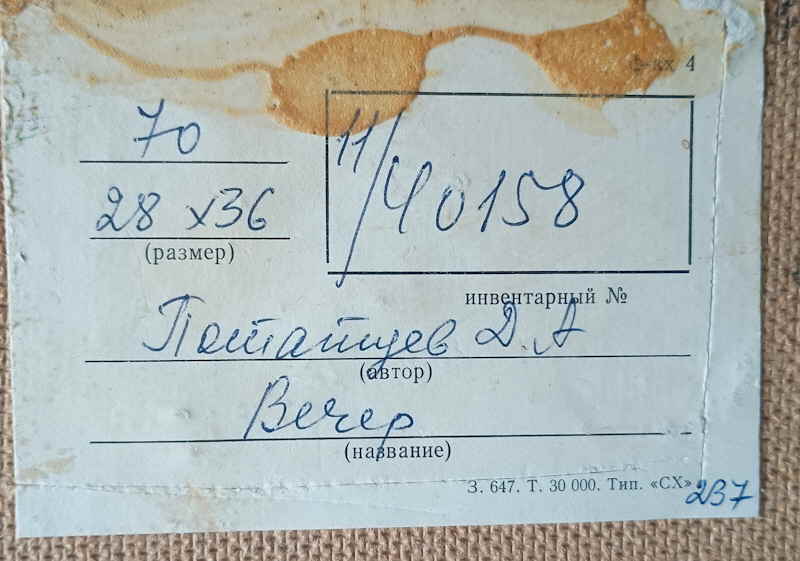 4
70
11/40158
28 x 36
(размер)
инвентарный №
Потапцев Д.А
(автор)
Вечер
(название)
З. 647. Т. 30 000. Тип. «СХ»
237